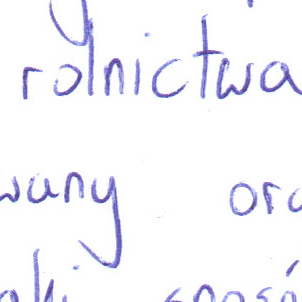 rolnictwa
wany ora
aki sposó